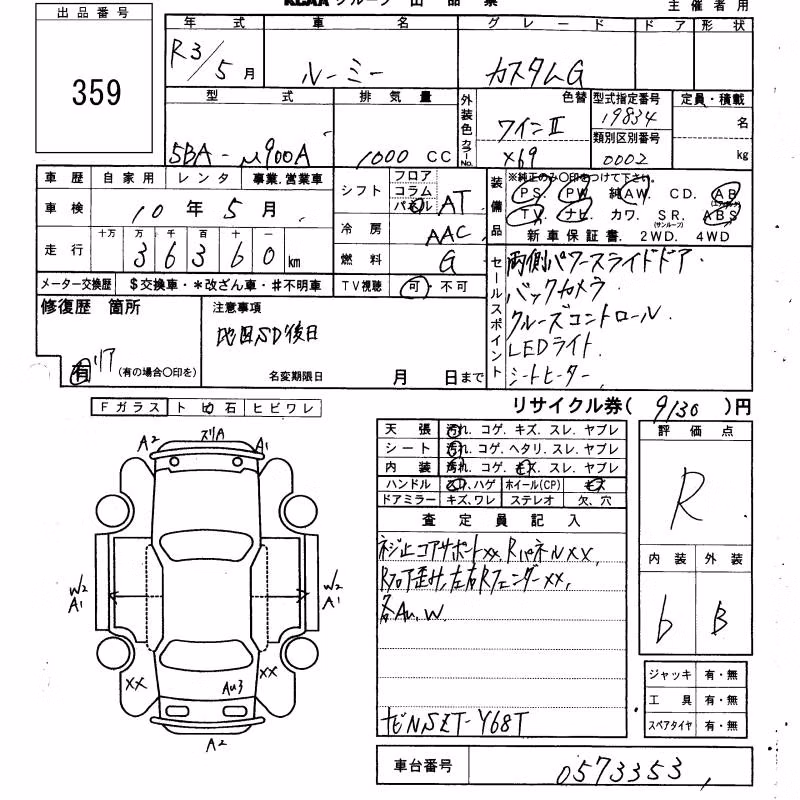 KCAA グループ 出 品 票
主催者用
出品番号
359
年 式 車 名 グレード ドア 形状
R3/5月 ルーミー カスタムG
型 式 排気量 外装色 色替 型式指定番号 定員・積載
カラーNo. ワインⅡ 19834 名
類別区別番号
5BA-M900A 1000 CC X69 0002 kg
車歴 自家用 レンタ 事業.営業車
シフト フロア コラム パネル AT
車検 10年5月
冷房 AAC
走行 十万 万 千 百 十 一
36360 km
燃料 G
メーター交換歴 $交換車・*改ざん車・#不明車
TV視聴 可・不可
装備品 ※純正のみ○印をつけて下さい。
PS. PW. 純AW. CD. AB
(エアバッグ)
TV. ナビ. カワ. SR. ABS
(サンルーフ)
新車保証書. 2WD. 4WD
セールスポイント
両側パワースライドドア.
バックカメラ
クルーズコントロール.
LEDライト.
シートヒーター.
修復歴 箇所
有 リア (有の場合○印を)
注意事項
地図SD後日
名変期限日 月 日まで
リサイクル券( 9130 )円
Fガラス トビ石 ヒビワレ
A2 スリA A1
W2 A1
W2 A1
XX XX
Au3
A2
天張 汚れ. コゲ. キズ. スレ. ヤブレ
シート 汚れ. コゲ. ヘタリ. スレ. ヤブレ
内装 汚れ. コゲ. キズ. スレ. ヤブレ
ハンドル スレ. ハゲ ホイール(CP) キズ
ドアミラー キズ. ワレ ステレオ 欠. 穴
査定員記入
ネジ止コアサポートxx, Rパネルxx,
Rフロア歪み, 左右Rフェンダーxx,
各Au, W.
ナビNSZT-Y68T
評価点
R
内装 外装
b B
ジャッキ 有・無
工具 有・無
スペアタイヤ 有・無
車台番号 0573353